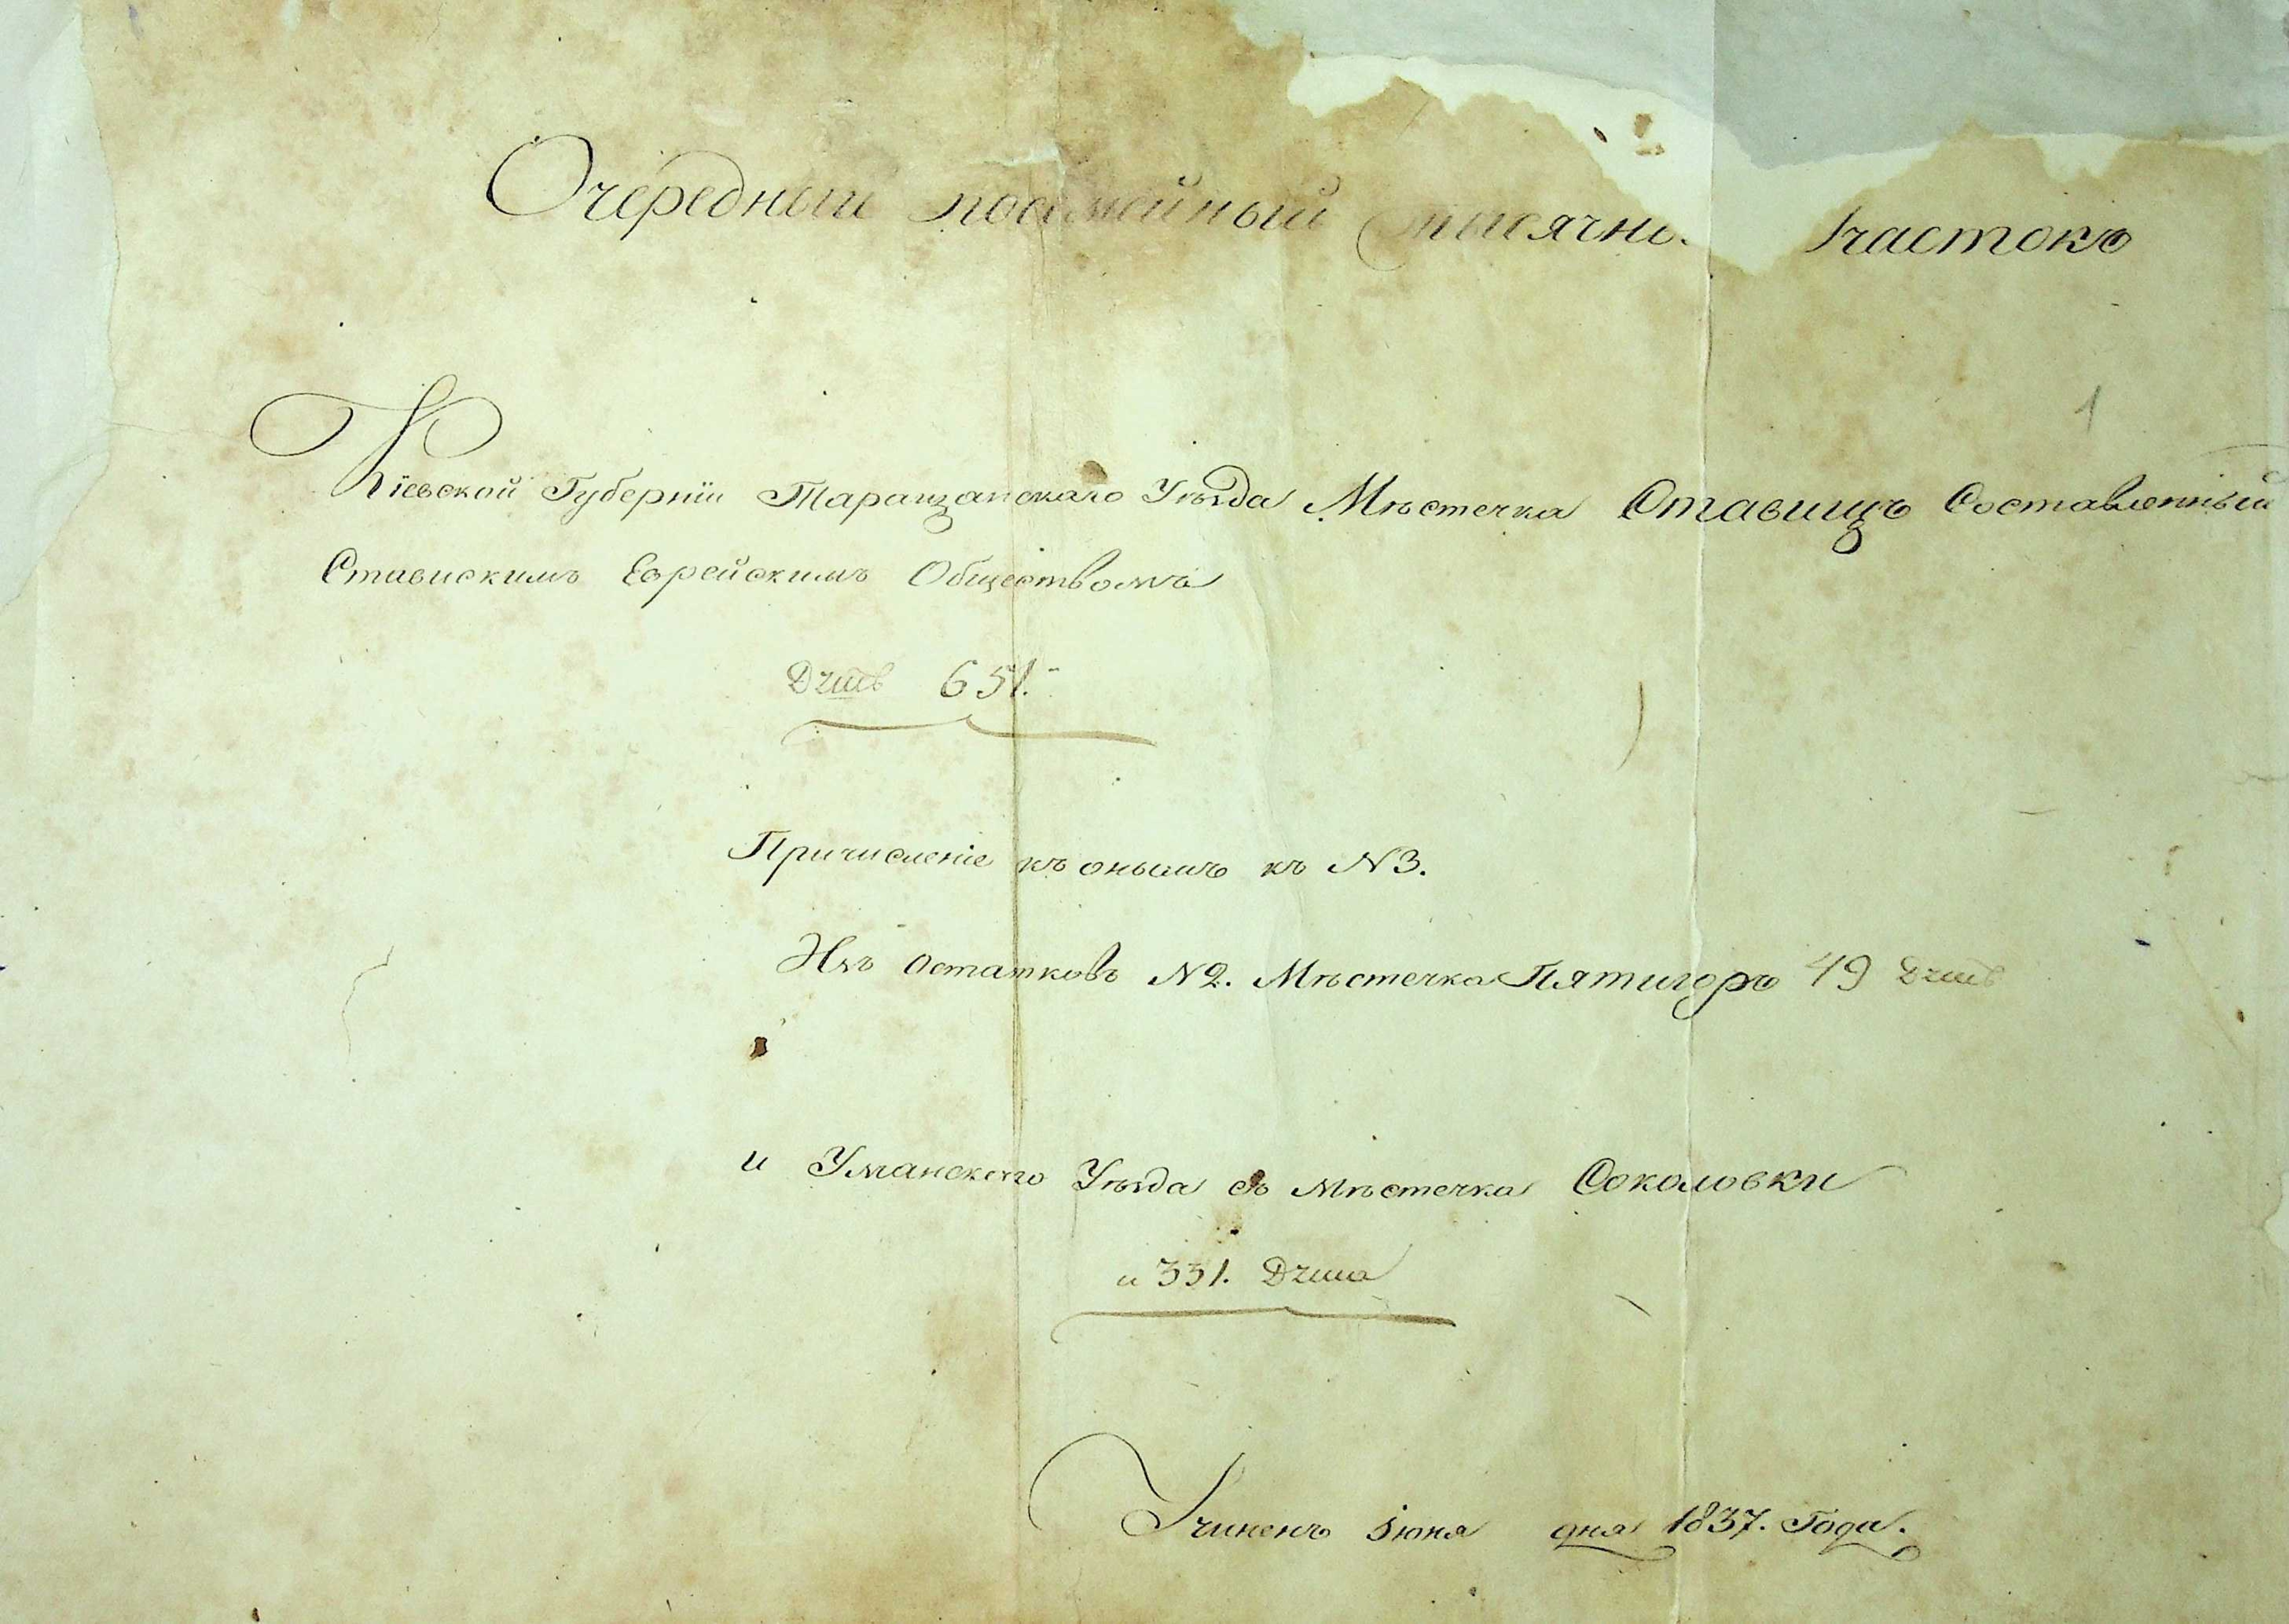 Очередный посемейный тысячн. Участокъ
1
Кіевской Губерніи Таращанскаго Уѣзда Мѣстечка Ставищъ Составленный
Ставискимъ Еврейскимъ Обществомъ
Дшъ 651.
Причисленіе къ онымъ къ N3.
Изъ Остатковъ N2. Мѣстечка Пятигоръ 49
и Уманскаго Уѣзда съ Мѣстечка Соколовки
и 331. Дша
Учиненъ Іюня дня 1837. Года.